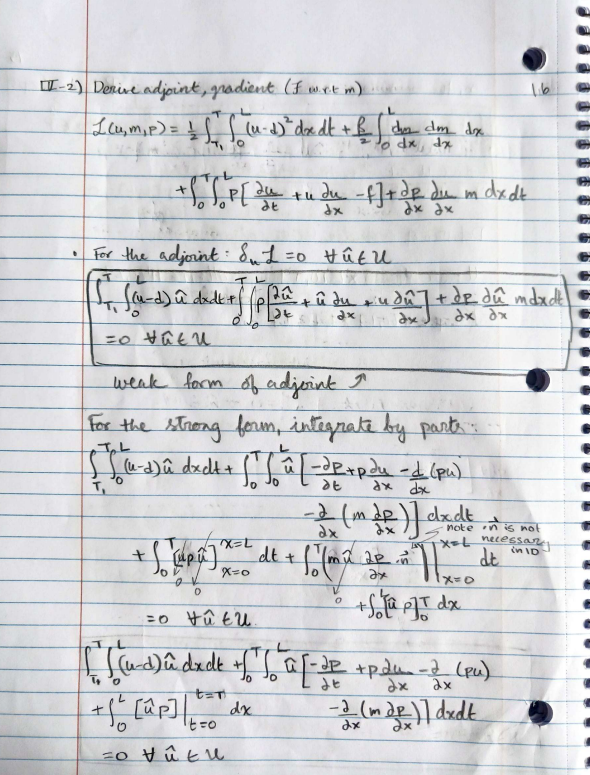 II-2) Derive adjoint, gradient (F w.r.t m) 1.6
L(u,m,p) = 1/2 ∫_{T₁}^{T} ∫_0^L (u-d)² dx dt + β/2 ∫_0^L dm/dx, dm/dx dx
+ ∫_0^T ∫_0^L p[∂u/∂t + u ∂u/∂x - f] + ∂p/∂x ∂u/∂x m dx dt
• For the adjoint: δ_u L = 0 ∀ û ∈ U
∫_{T₁}^{T} ∫_0^L (u-d) û dx dt + ∫_0^T ∫_0^L p[∂û/∂t + û ∂u/∂x + u ∂û/∂x] + ∂p/∂x ∂û/∂x m dx dt
= 0 ∀ û ∈ U
weak form of adjoint ↗
For the strong form, integrate by parts:
∫_{T₁}^{T} ∫_0^L (u-d) û dx dt + ∫_0^T ∫_0^L û [-∂p/∂t + p ∂u/∂x - d/dx (pu)
- ∂/∂x (m ∂p/∂x)] dx dt
note n⃗ is not necessary in 1D
+ ∫_0^T [upû]_{x=0}^{x=L} dt + ∫_0^T (m û ∂p/∂x · n⃗)|_{x=0}^{x=L} dt
0 0 0
+ ∫_0^L [û p]_0^T dx
= 0 ∀ û ∈ U
∫_{T₁}^{T} ∫_0^L (u-d) û dx dt + ∫_0^T ∫_0^L û [-∂p/∂t + p ∂u/∂x - ∂/∂x (pu)
+ ∫_0^L [û p]|_{t=0}^{t=T} dx - ∂/∂x (m ∂p/∂x)] dx dt
= 0 ∀ û ∈ U